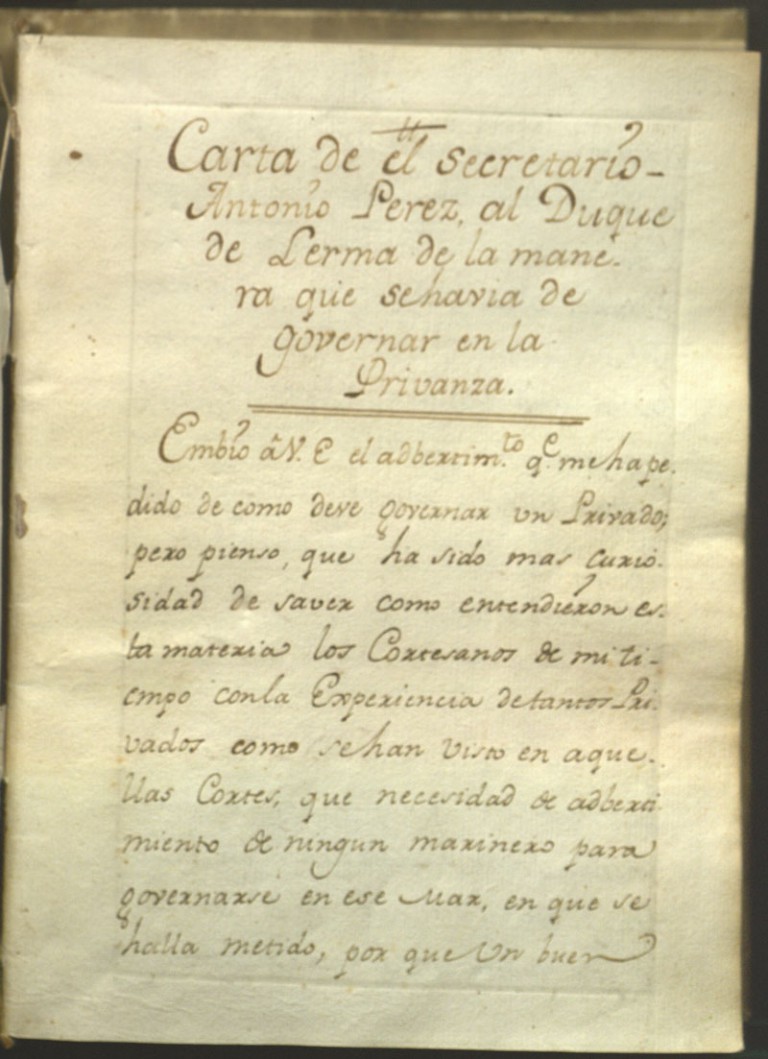 Carta de el Secretario
Antonio Perez, al Duque
de Lerma de la mane-
ra que sehavia de
governar en la
Privanza.
Embio â V. E el adbertim.to q.e me ha pe-
dido de como deve governar un Privado;
pero pienso, que ha sido mas curio-
sidad de saver como entendieron es-
ta materia los Cortesanos de mi ti-
empo conla Experiencia detantos Pri-
vados como sehan visto en aque-
llas Cortes, que necesidad de adberti
miento de ningun marinero para
governarse en ese Mar, en que se
halla metido, por que Un buen